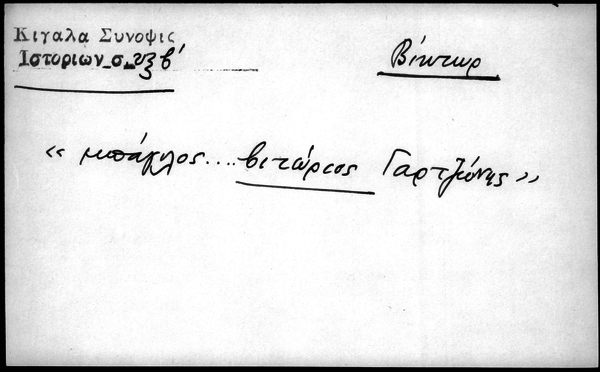 Κιγαλα Συνοψις
Ιστοριων σ. υξβ'
Βίκτωρ
« μπάϊλος.... βιτώριος Γαρτζώνης »